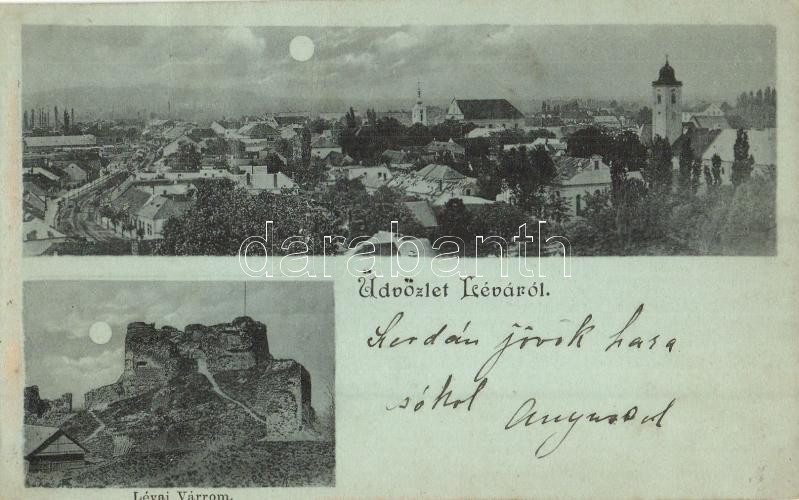 darabanth
Üdvözlet Léváról.
Kerdán jövök haza
sókol
Lévai Várrom.